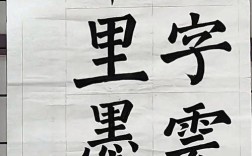 字雲
里墨